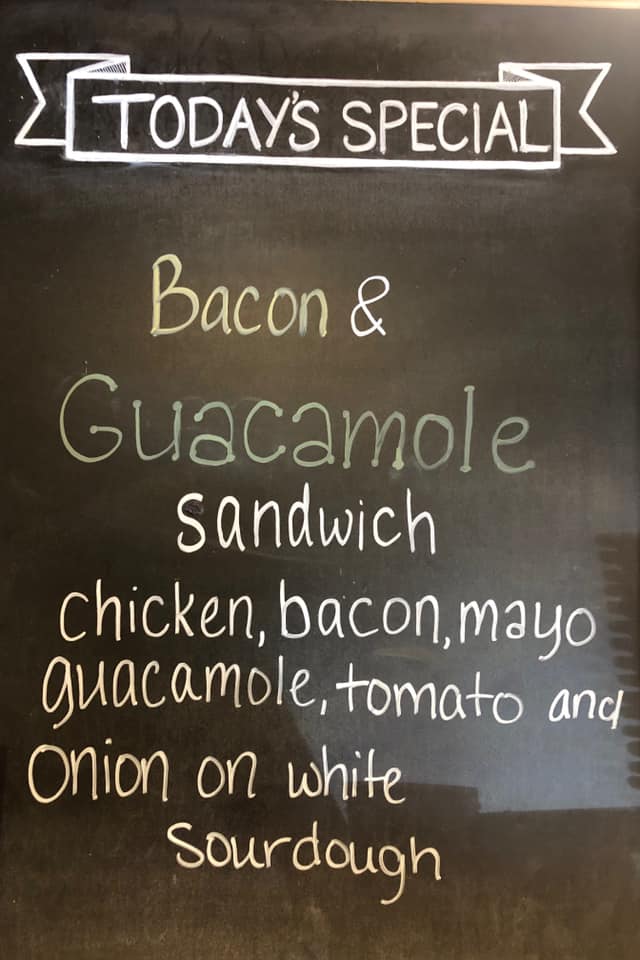 TODAY'S SPECIAL
Bacon &
Guacamole
Sandwich
Chicken, bacon, mayo
guacamole, tomato and
Onion on white
Sourdough